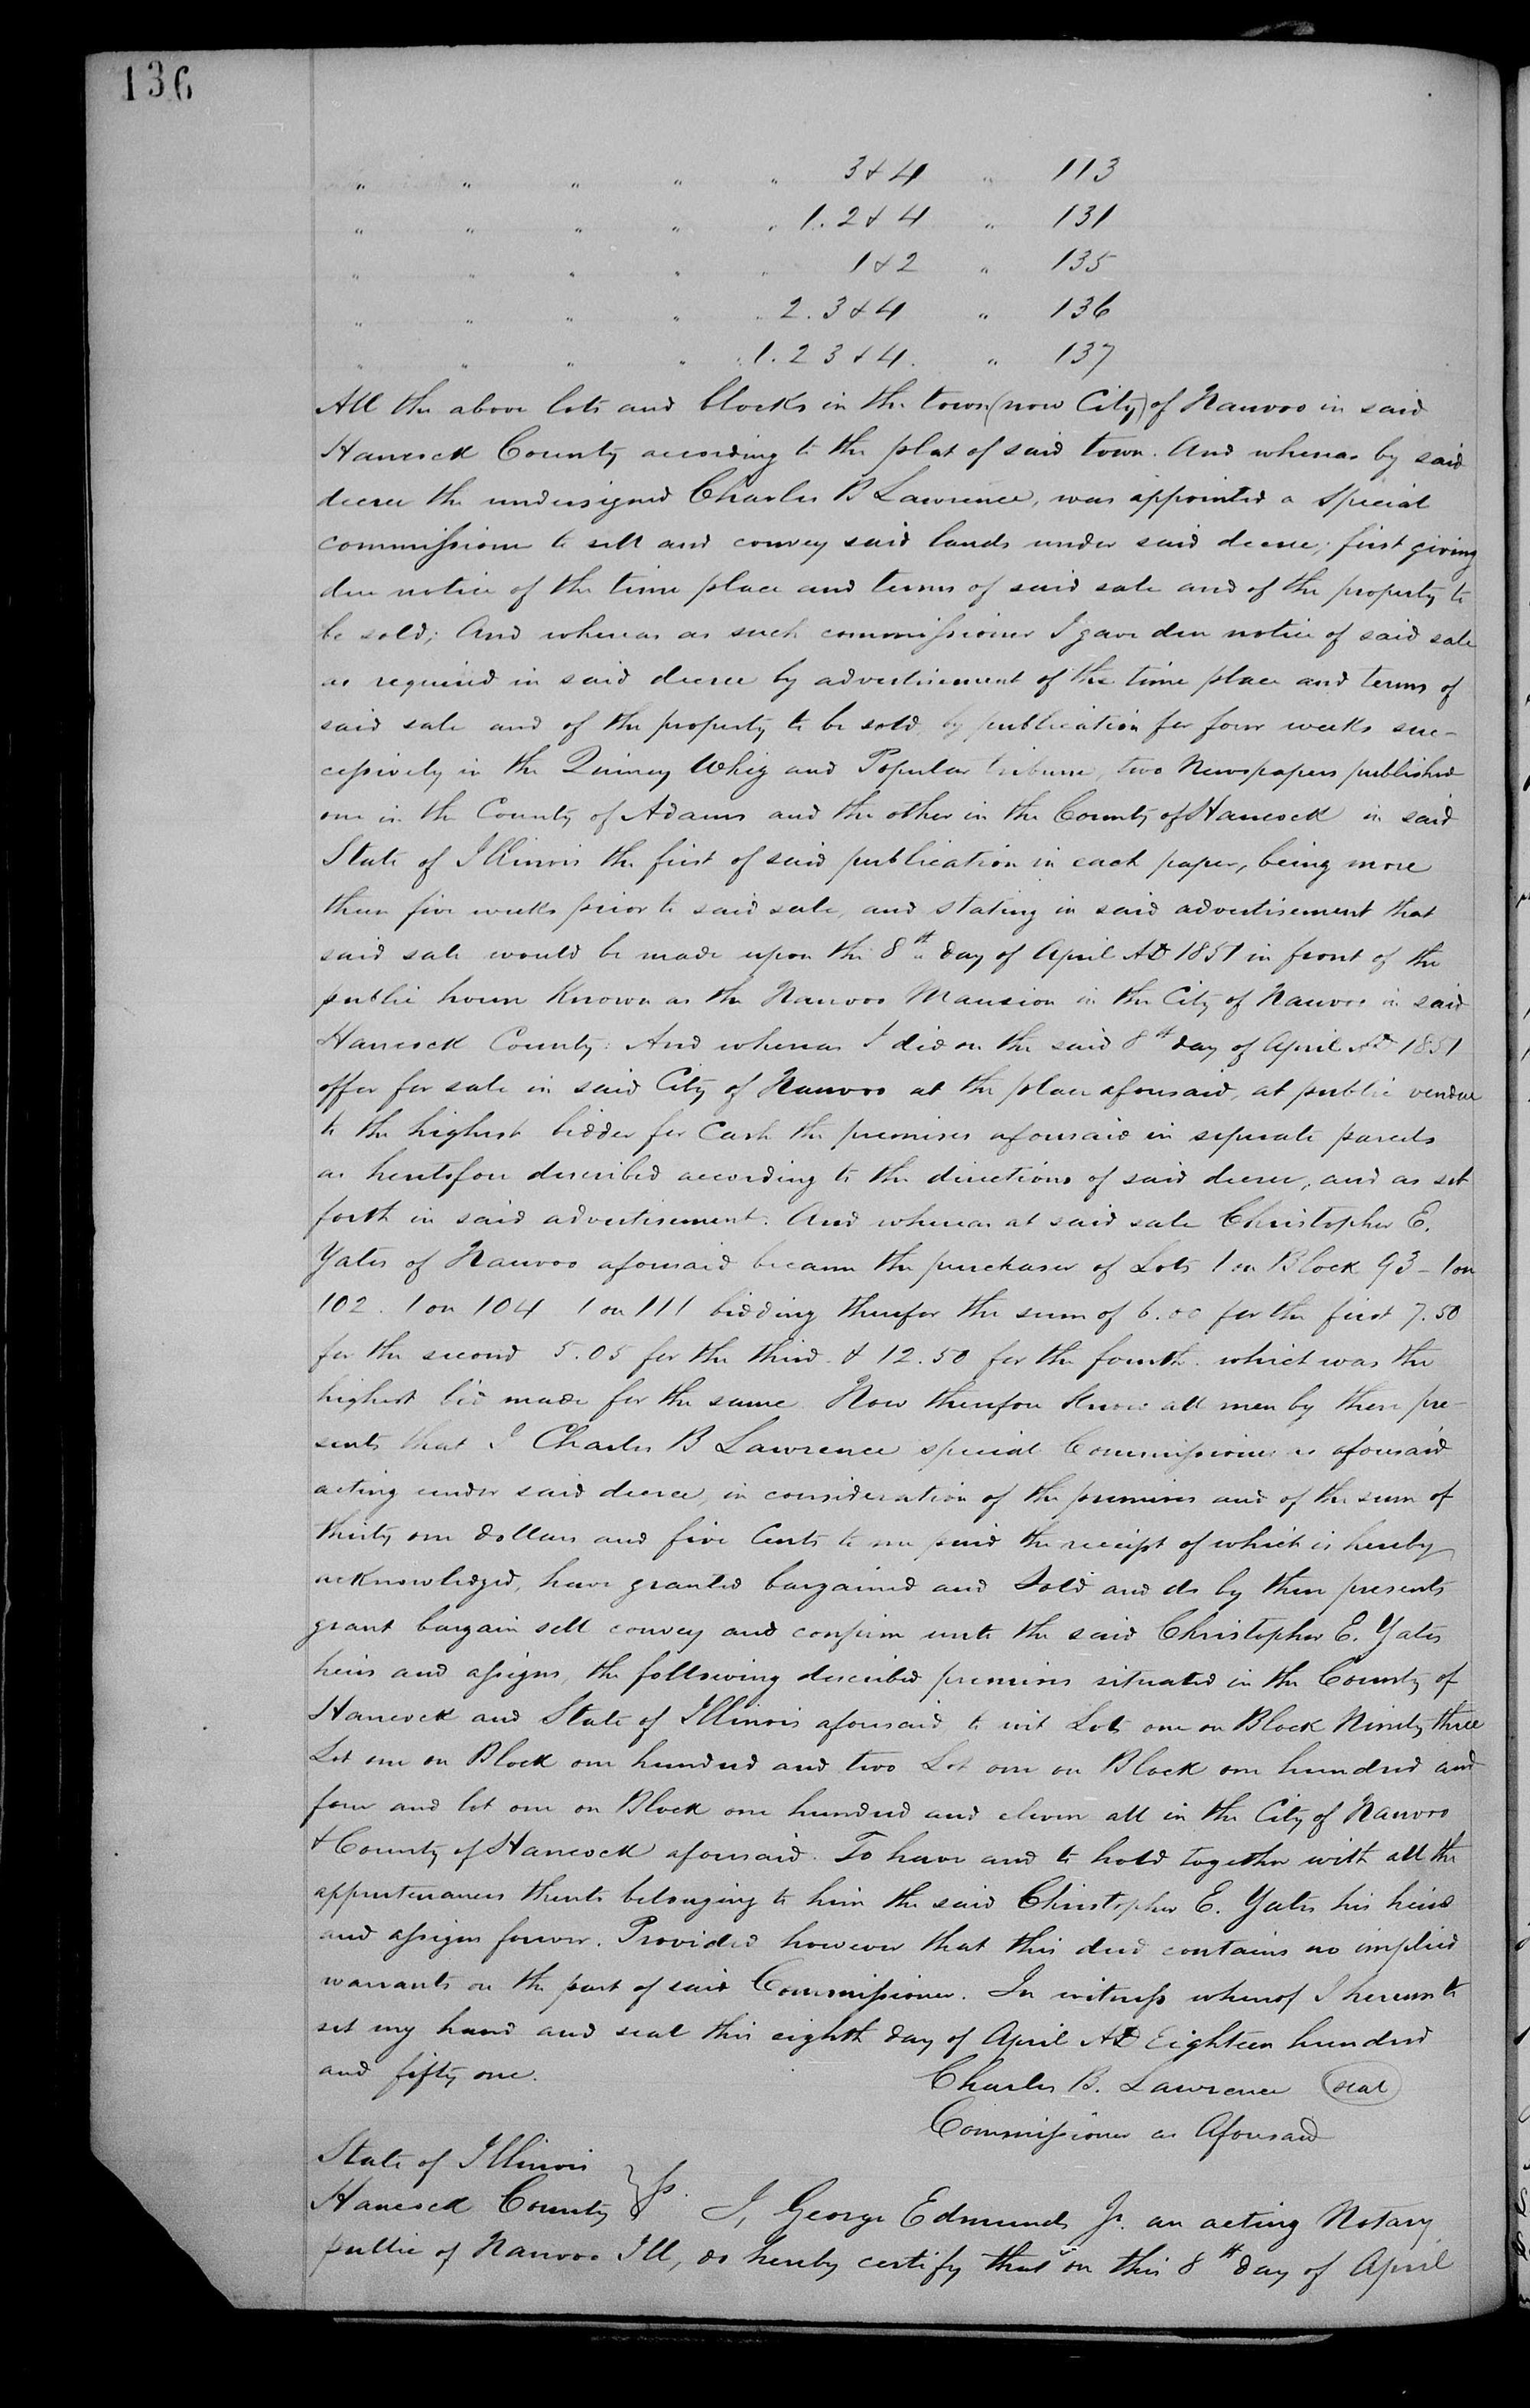 136
" " " " " 3 & 4 " 113
" " " " " 1. 2 & 4 " 131
" " " " " 1 & 2 " 135
" " " " " 2. 3 & 4 " 136
" " " " " 1. 2 3 & 4. " 137
All the above lots and blocks in the town (now City) of Nauvoo in said
Hancock County according to the plat of said town. And whereas by said
decree the undersigned Charles B Lawrence, was appointed a special
commissioner to sell and convey said lands under said decree, first giving
due notice of the time place and terms of said sale and of the property to
be sold; And whereas as such commissioner I gave due notice of said sale
as required in said decree by advertisement of the time place and terms of
said sale and of the property to be sold by publication for four weeks suc-
cessively in the Quincy Whig and Popular tribune, two Newspapers published
one in the County of Adams and the other in the County of Hancock in said
State of Illinois the first of said publication in each paper, being more
than five weeks prior to said sale, and stating in said advertisement that
said sale would be made upon the 8th day of April AD 1851 in front of the
public house Known as the Nauvoo Mansion in the City of Nauvoo in said
Hancock County: And whereas I did on the said 8th day of April AD 1851
offer for sale in said City of Nauvoo at the place aforesaid, at public vendue
to the highest bidder for Cash the premises aforesaid in seperate parcels
as heretofore described according to the directions of said decree, and as set
forth in said advertisement. And whereas at said sale Christopher E.
Yates of Nauvoo aforesaid became the purchaser of Lots 1 on Block 93 - 1 on
102. 1 on 104 1 on 111 bidding therefor the sum of 6.00 for the first 7.50
for the second 5.05 for the third & 12.50 for the fourth. which was the
highest bid made for the same Now therefore Know all men by these pre-
sents that I Charles B Lawrence special Commissioner as aforesaid
acting under said decree, in consideration of the premises and of the sum of
thirty one dollars and five Cents to me paid the receipt of which is hereby
acknowledged, have granted bargained and Sold and do by these presents
grant bargain sell convey and confirm unto the said Christopher E. Yates
heirs and assigns, the following described premises situated in the County of
Hancock and State of Illinois aforesaid to wit Lots one on Block Ninety three
Lot one on Block one hundred and two Lot one on Block one hundred and
four and lot one on Block one hundred and eleven all in the City of Nauvoo
& County of Hancock aforesaid. To have and to hold together with all the
appurtenances thereto belonging to him the said Christopher E. Yates his heirs
and assigns forever. Provided however that this deed contains no implied
warrants on the part of said Commissioner. In witness whereof I hereunto
set my hand and seal this eighth day of April AD Eighteen hundred
and fifty one.
Charles B. Lawrence (seal)
Commissioner as Aforesaid
State of Illinois
Hancock County } ss. I, George Edmunds Jr. an acting Notary
public of Nauvoo Ill, do hereby certify that on this 8th day of April